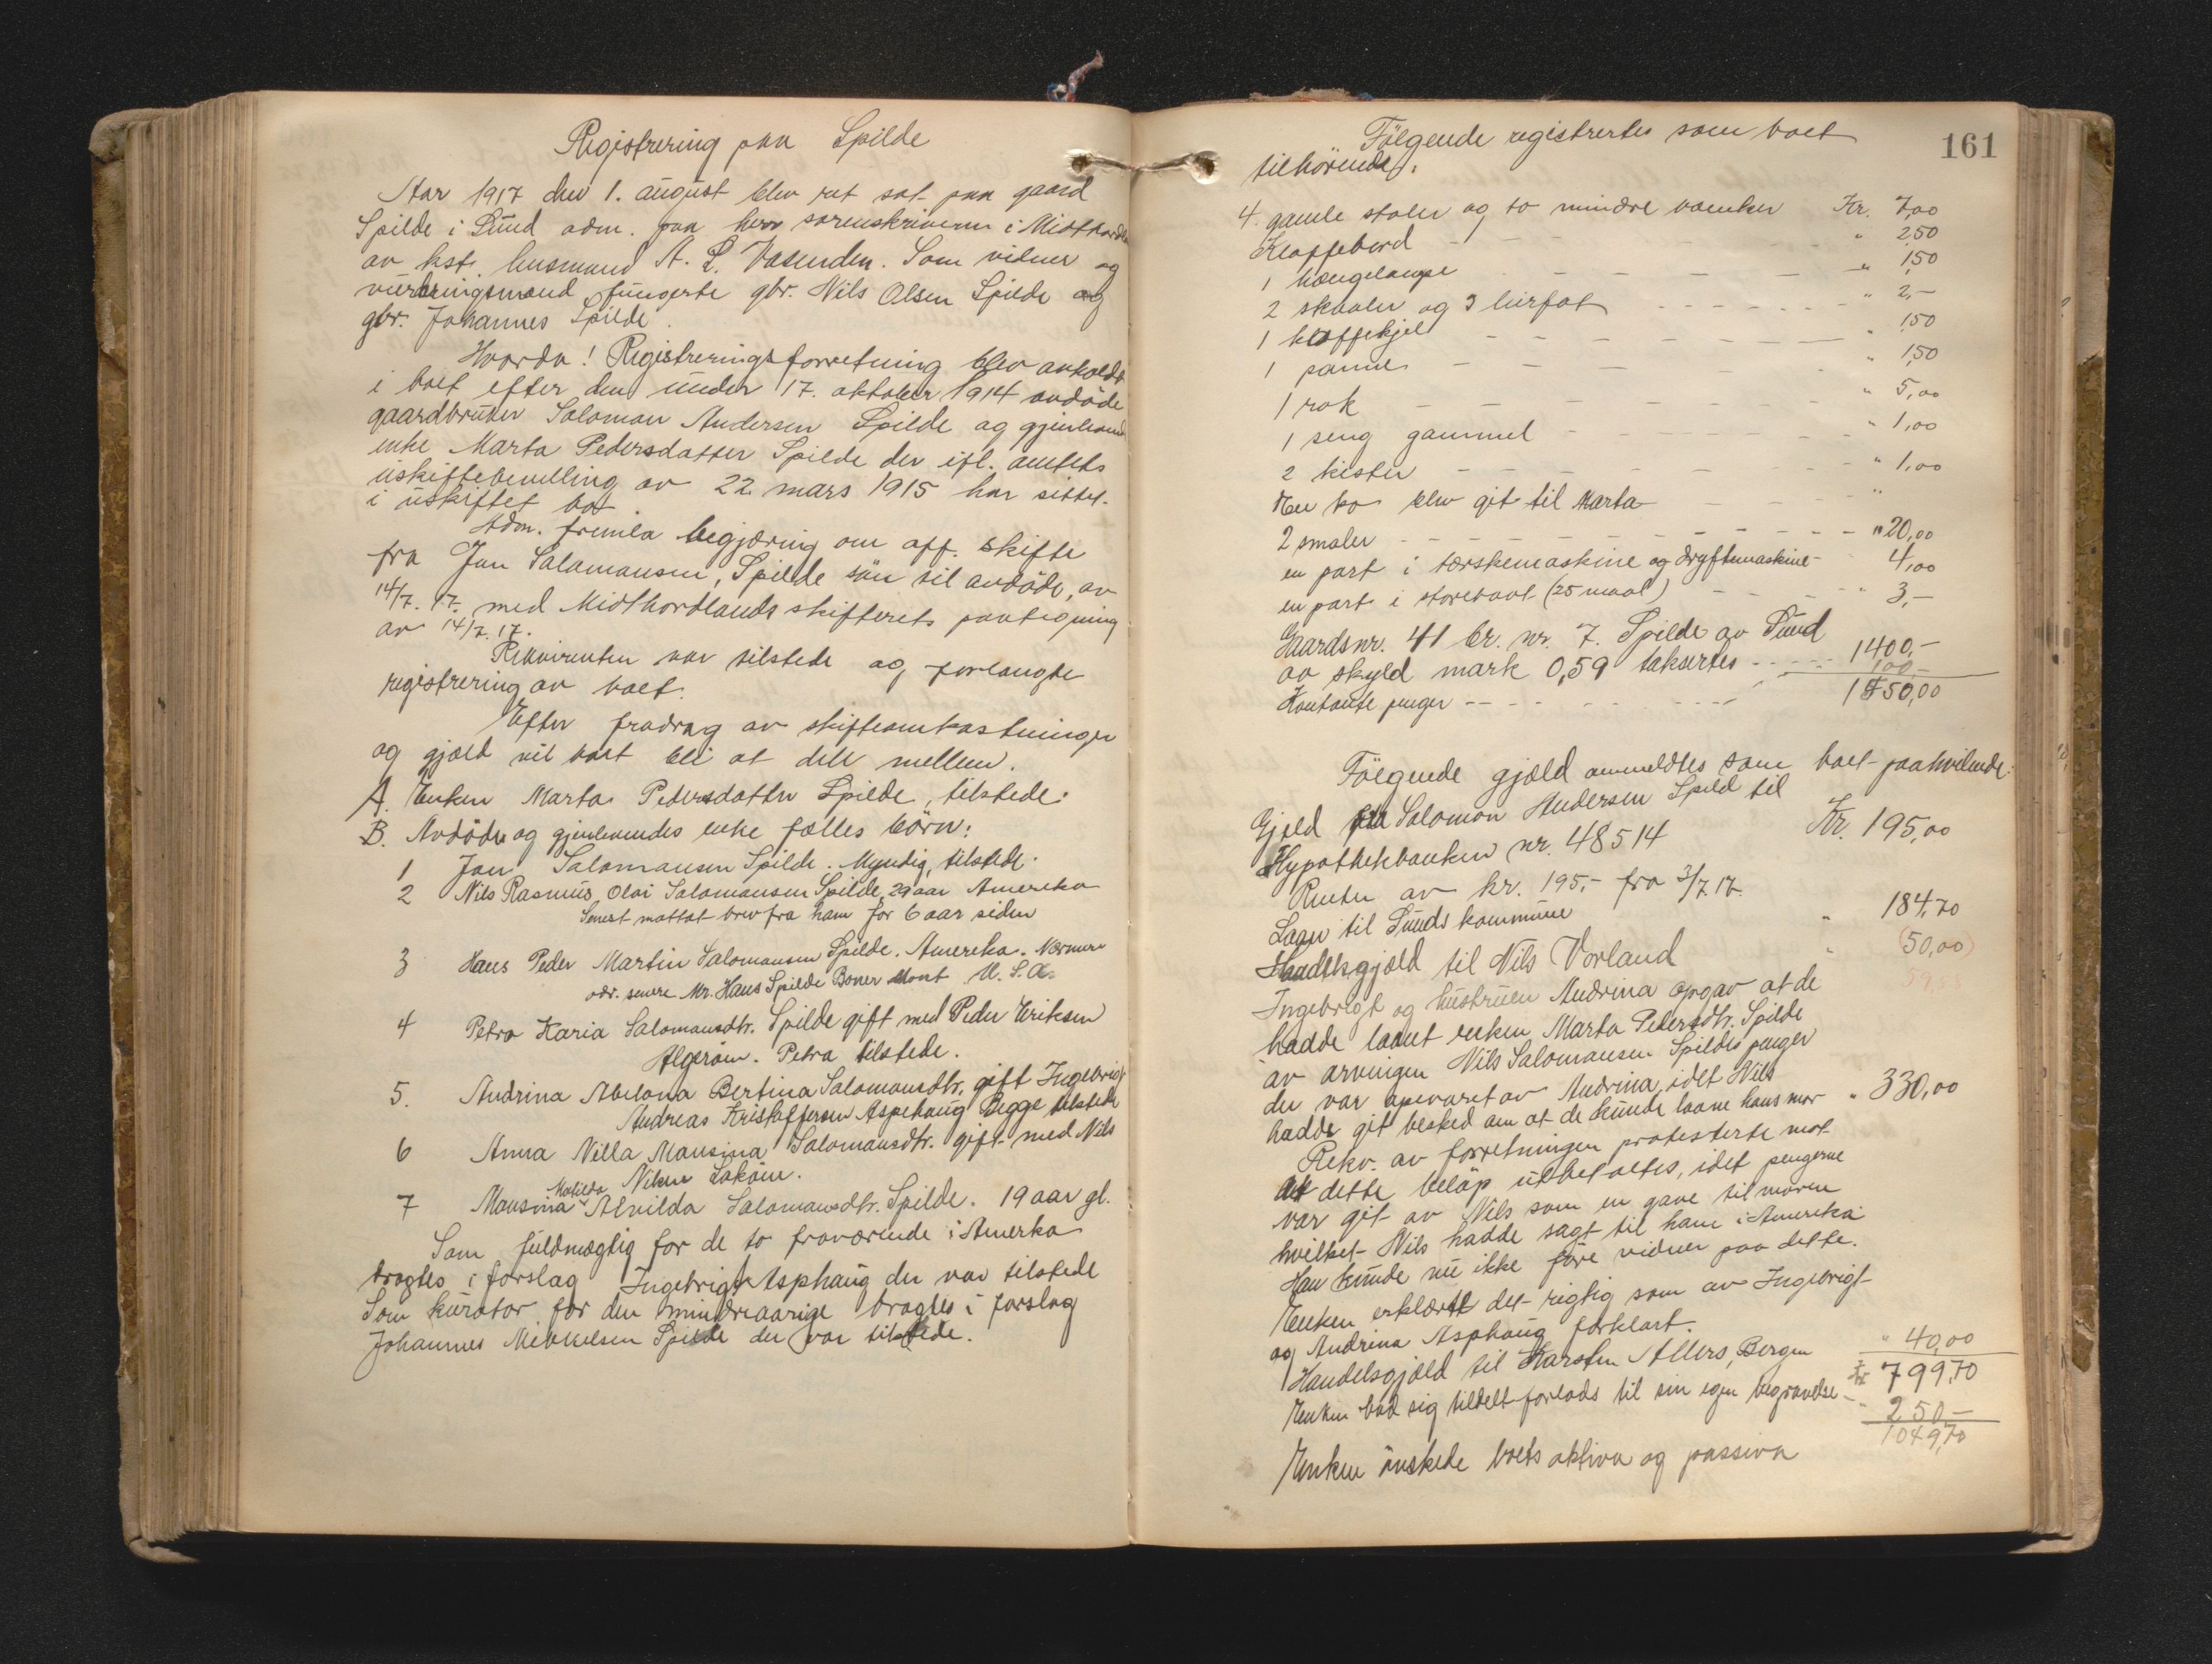 Registrering paa Spilde
Aar 1917 den 1. august blev ret sat paa gaard
Spilde i Sund adm. paa herr sorenskriveren i Midthordl
av kst. lensmand A. L. Vasenden. Som vidner og
vurderingsmænd fungerte gbr. Nils Olsen Spilde og
gbr. Johannes Spilde.
Hvorda! Registreringsforretning blev avholdt
i boet efter den under 17. oktober 1914 avdöde
gaardbruker Salomon Andersen Spilde og gjenlevende
enke Marta Pedersdatter Spilde der ifl. amtets
uskiftebevilling av 22. mars 1915 har sittet
i uskiftet bo.
Adm. fremla begjæring om off. skifte
fra Jon Salamonsen, Spilde sön til avdöde, av
14/7. 17. med Midthordlands skifterets paategning
av 14/7. 17.
Rekvirenten var tilstede og forlangte
registrering av boet.
Efter fradrag av skifteomkostninger
og gjæld vil boet bli at dele mellem.
A. Enken Marta Pedersdatter Spilde, tilstede.
B. Avdödes og gjenlevendes enke fælles börn:
1 Jon Salamonsen Spilde. Myndig, tilstede.
2 Nils Rasmus Olai Salamonsen Spilde, 29 aar Amerika
Senest mottat brev fra ham for 6 aar siden
3 Hans Peder Martin Salomonsen Spilde. Amerika. Nærmere
adr. senere Mr. Hans Spilde Boner Mont U. S. A.
4 Petra Karia Salamonsdtr. Spilde gift med Peder Eriksen
Algeröen. Petra tilstede.
5. Andrina Abelona Bertina Salamonsdtr. gift Ingebrigt
Andreas Kristoffersen Aspehaug Begge tilstede
6 Anna Nilla Mansina Salomonsdtr. gift med Nils
Nilsen Laköen.
7 Mansina Matilda Alvilda Salamonsdtr. Spilde. 19 aar gl.
Som fuldmægtig for de to fraværende i Amerka
bragtes i forslag Ingebrigt Asphaug der var tilstede
Som kurator for den mindreaarige bragtes i forslag
Johannes Mikkelsen Spilde der var tilstede.
161
Fölgende registrertes som boet
tilhörende:
4. gamle stoler og to mindre bænker Kr. 7,00
Klaffebord " 2,50
1 hængelampe " 1,50
2 skaaler og 3 lerfat " 2,-
1 kaffekjel " 1,50
1 panne " 1,50
1 rok " 5,00
1 seng gammel " 1,00
2 kister " 1,00
En ko blev git til Marta "
2 smaler " 20,00
en part i tærskemaskine og dryftemaskine 4,00
en part i storebaat (25 maal) " 3,-
Gaardsnr. 41 br. nr. 7. Spilde av Sund
av skyld mark 0,59 taksertes 1400,-
Kontante penger 100,-
1550,00
Fölgende gjæld anmeldtes som boet paahvilende:
Gjæld fra Salomon Andersen Spild til
Hypothekbanken nr. 48514 Kr. 195,00
Renter av kr. 195,- fra 3/7 17.
Laan til Sunds kommune " 184,70
Handelsgjæld til Nils Vorland " (50,00)
Ingebrigt og hustruen Andrina opgav at de
hadde laant enken Marta Pedersdtr. Spilde
av arvingen Nils Salomansen Spildes penger
der var opevaret av Andrina, idet Nils
hadde git besked om at de kunde laane hans mor " 330,00
Rekv. av forretningen protesterte mot
at dette belöp utbetaltes, idet pengerne
var git av Nils som en gave til moren
hvilket Nils hadde sagt til ham i Amerika
Han kunde nu ikke före vidner paa dette.
Enken erklærte det rigtig som av Ingebrigt
og Andrina Asphaug forklart.
Handelsgjæld til Karsten Allers, Bergen " 40,00
Kr 799,70
Enken bad sig tildelt forlods til sin egen begravelse - 250,-
1049,70
Enken önskede boets aktiva og passiva